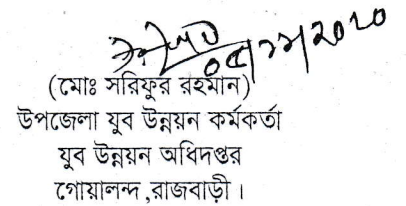 ০৫/১১/২০২০
(মোঃ সরিফুর রহমান)
উপজেলা যুব উন্নয়ন কর্মকর্তা
যুব উন্নয়ন অধিদপ্তর
গোয়ালন্দ ,রাজবাড়ী।